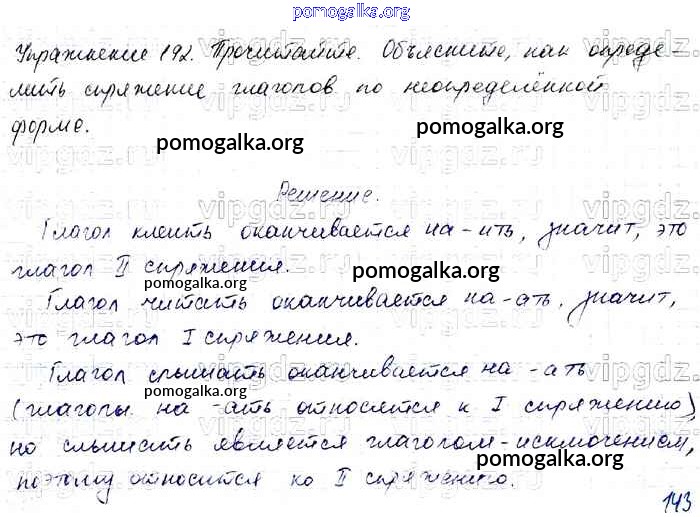 pomogalka.org
Упражнение 192. Прочитайте. Объясните, как опреде-
лить спряжение глаголов по неопределённой
форме.
pomogalka.org
pomogalka.org
vipgdz.ru
Решение.
Глагол клеить оканчивается на -ить, значит, это
глагол II спряжения.
pomogalka.org
Глагол читать оканчивается на -ать, значит,
это глагол I спряжения.
Глагол слышать оканчивается на -ать
pomogalka.org
(глаголы на -ать относятся к I спряжению),
но слышать является глаголом-исключением,
pomogalka.org
поэтому относится ко II спряжению.
143